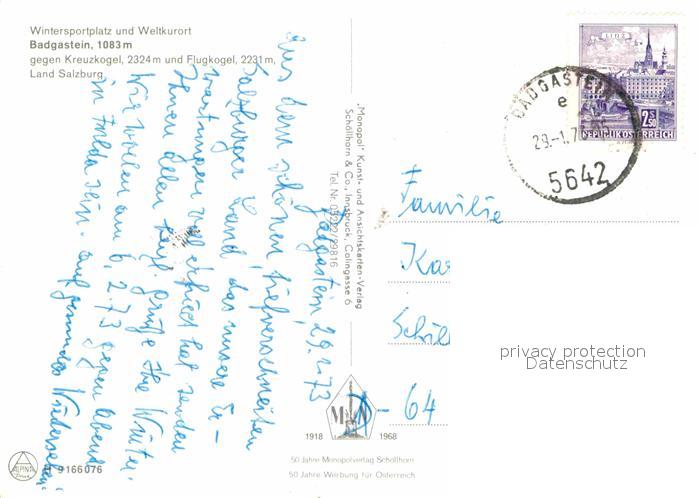 Wintersportplatz und Weltkurort
Badgastein, 1083 m
gegen Kreuzkogel, 2324 m und Flugkogel, 2231 m,
Land Salzburg
Badgastein, 29.1.73
Aus dem schönen, tiefverschneiten
Salzburger Land das unsere Er-
wartungen voll erfüllt hat senden
Ihnen allen herzl. Grüße Ihre
Wir wollen am 6.2.73 gegen Abend
in Fulda sein. Auf gesundes Wiedersehen
"Monopol" Kunst- und Ansichtskarten-Verlag
Schöllhorn & Co., Innsbruck, Colingasse 6
Tel. Nr. 05222/29816
LINZ
2.50
REPUBLIK ÖSTERREICH
BADGASTEIN
e
29.-1.7
5642
Familie
Ka
Schil
D - 64
privacy protection
Datenschutz
M N
1918 1968
50 Jahre Monopolverlag Schöllhorn
50 Jahre Werbung für Österreich
ALPINA
Druck
9166076